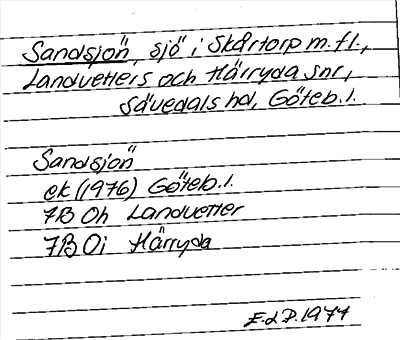 Sandsjön, sjö i Skårtorp m.fl.,
Landvetters och Härryda snr,
Sävedals hd, Göteb.l.
Sandsjön
ek (1976) Göteb.l.
7B 0h Landvetter
7B 0i Härryda
1977